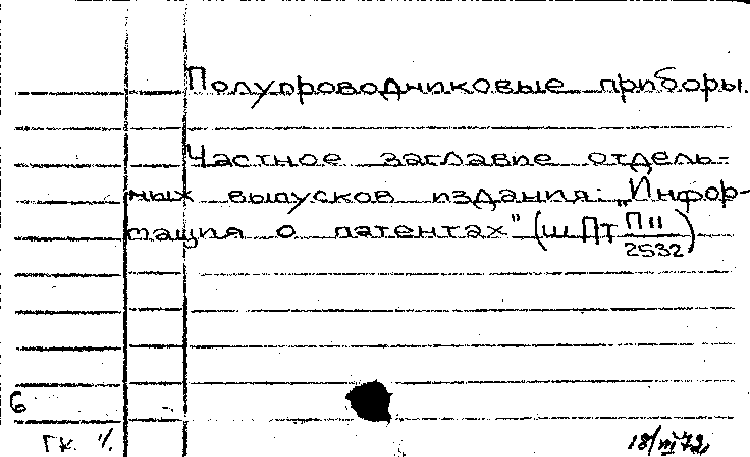 Полупроводниковые приборы.
Частное заглавие отдель-
ных выпусков издания: „Инфор-
мация о патентах" (ш Пт П11/2532)
6
ГК
18/III 72